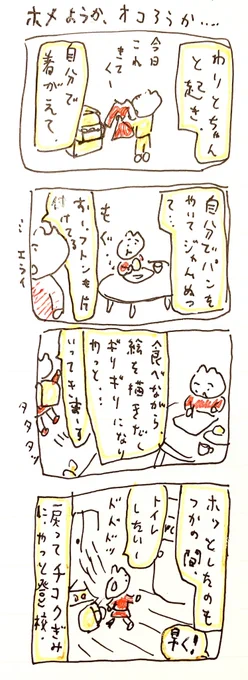 ホメようか、オコろうか‥‥
わりとちゃん
と起き、
今日
これ
きてくー
自分で
着がえて、
自分でパンを
やいてジャムぬっ
て…
もぐ
おふトンも片
付けてる
ミエライ
食べながら
絵を描きだし
ギリギリになり
やっと…
いってき まーす
タタタッ
ホッとしたのも
つかの間
トイレ
したいー
ドドドドッ
早く!
戻ってチコクぎみ
にやっと登校